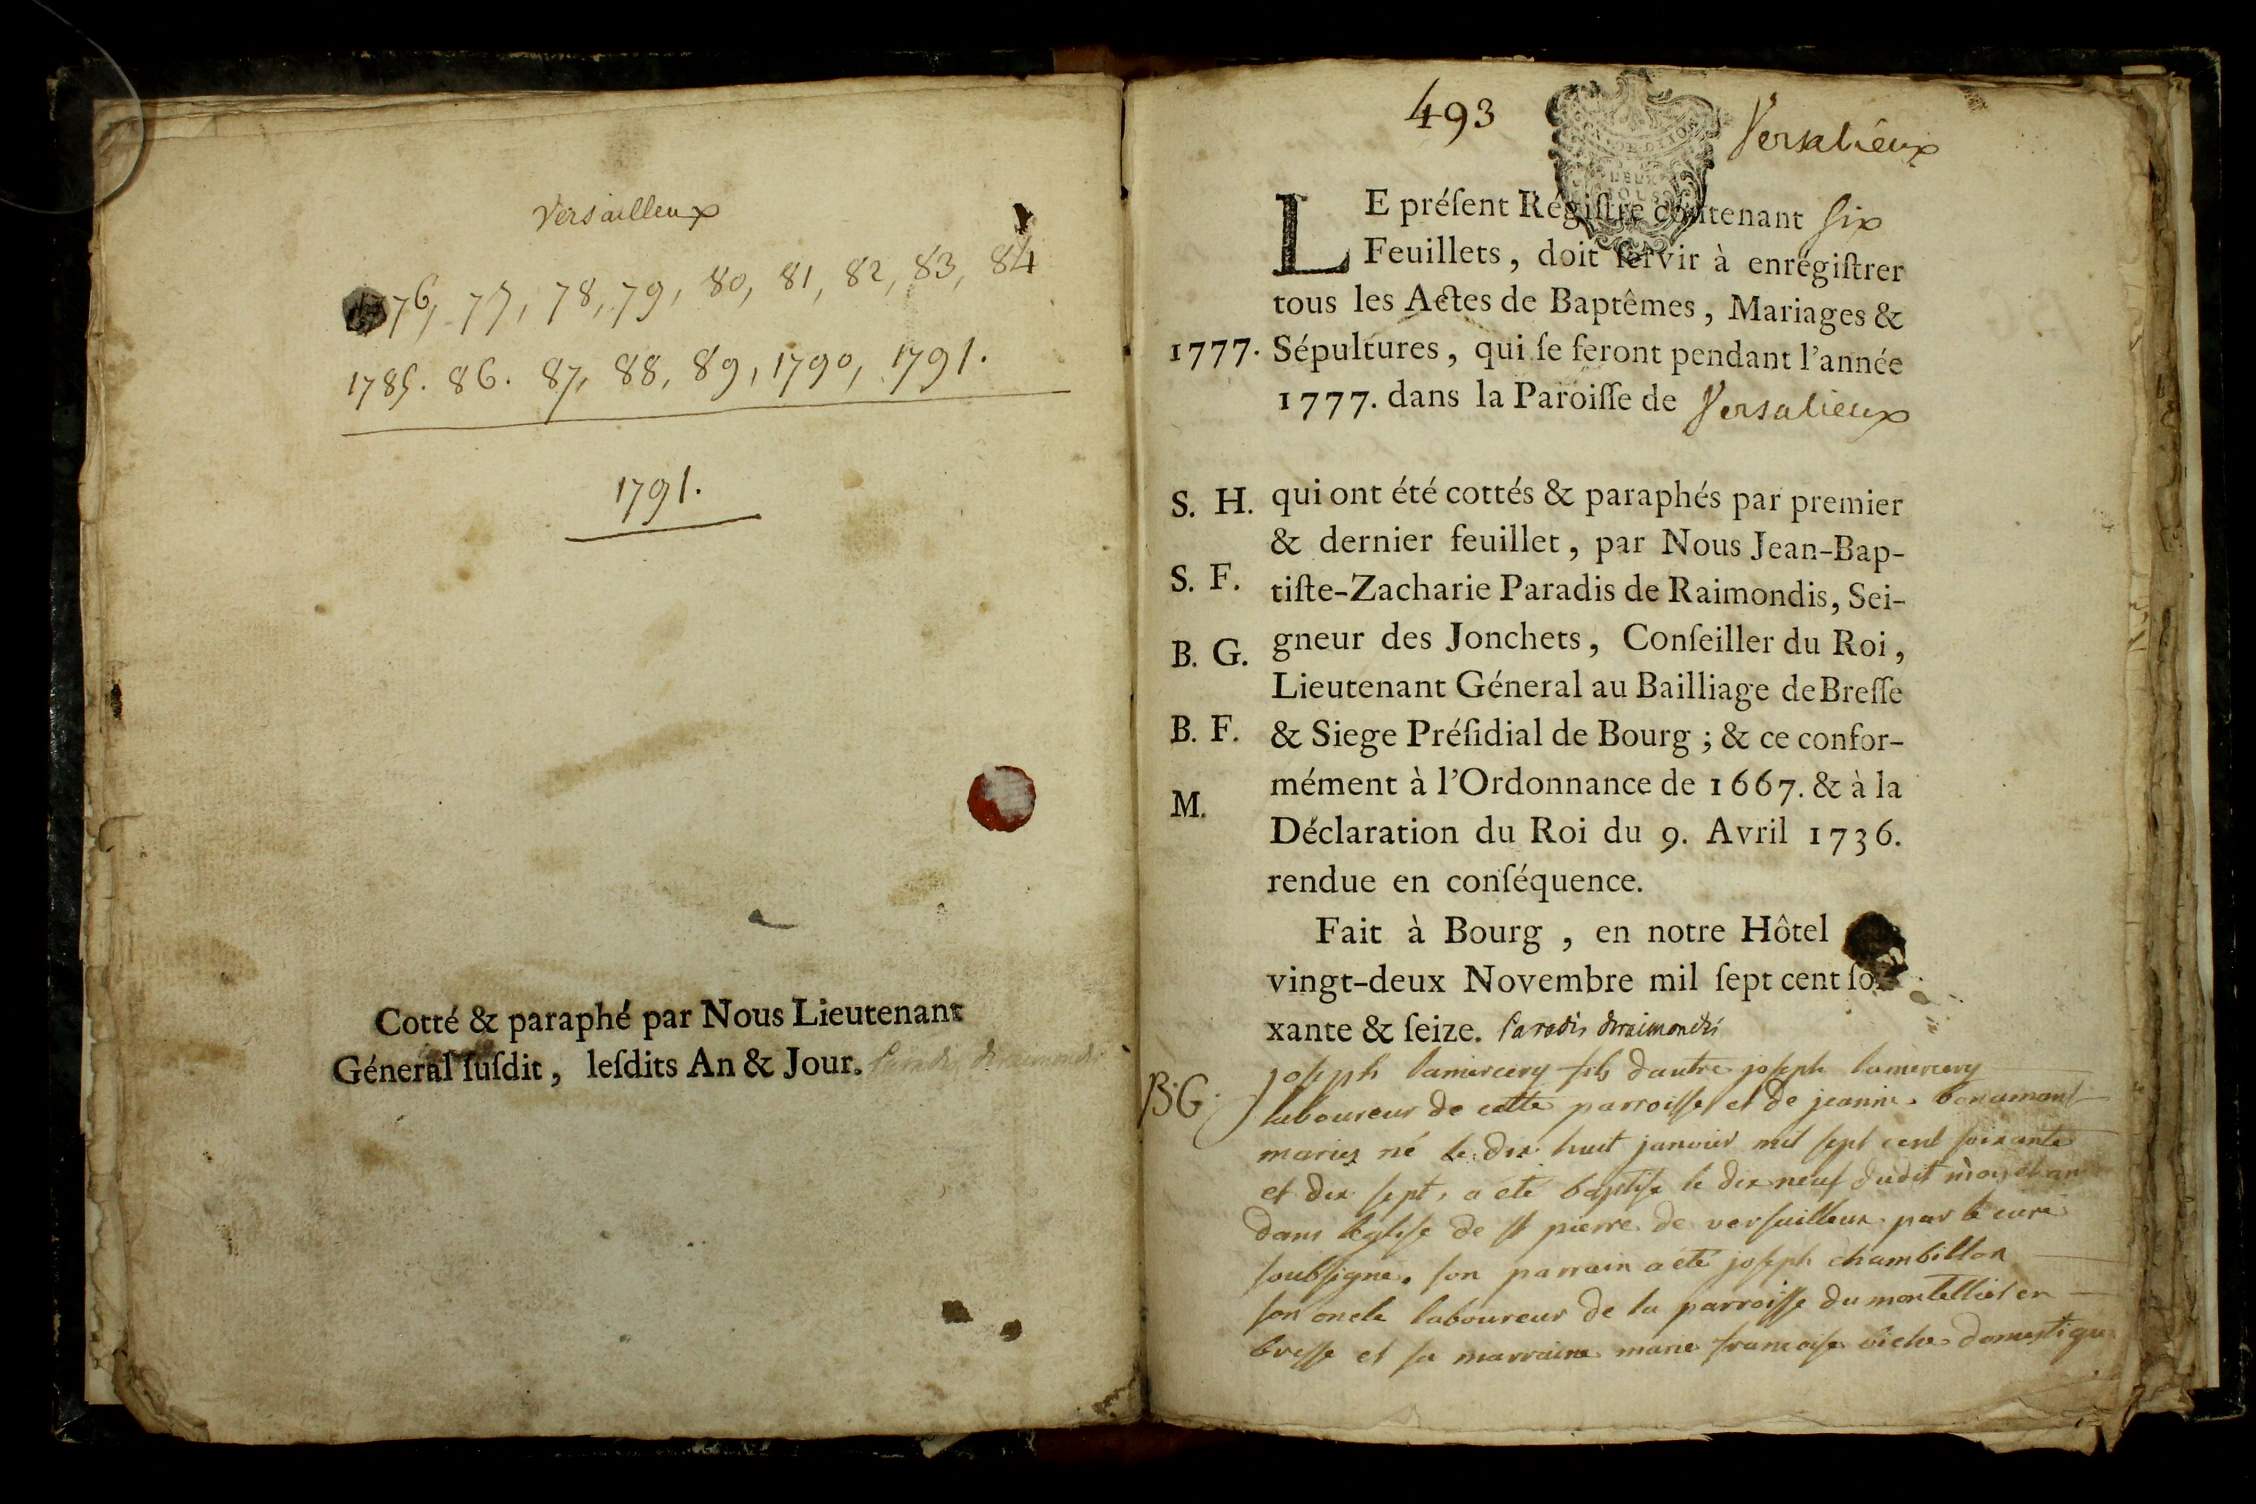 Versailleux
1776, 77, 78, 79, 80, 81, 82, 83, 84
1785. 86. 87, 88, 89, 1790, 1791.
1791.
Cotté & paraphé par Nous Lieutenant
Géneral ſuſdit, leſdits An & Jour. Paradis deraimondis
493
Versalieux
LE préſent Régiſtre contenant ſix
Feuillets, doit ſervir à enrégiſtrer
tous les Actes de Baptêmes, Mariages &
1777. Sépultures, qui ſe feront pendant l'année
1777. dans la Paroiſſe de Versalieux
S. H. qui ont été cottés & paraphés par premier
& dernier feuillet, par Nous Jean-Bap-
S. F. tiſte-Zacharie Paradis de Raimondis, Sei-
B. G. gneur des Jonchets, Conſeiller du Roi,
Lieutenant Géneral au Bailliage de Breſſe
B. F. & Siege Préſidial de Bourg ; & ce confor-
mément à l'Ordonnance de 1667. & à la
M. Déclaration du Roi du 9. Avril 1736.
rendue en conſéquence.
Fait à Bourg, en notre Hôtel
vingt-deux Novembre mil ſept cent ſoi-
xante & ſeize. Paradis deraimondis
joseph lamercery fils dautre joseph lamercery
B. G. laboureur de cette parroisse et de jeanne bonamant
mariez né le dix huit janvier mil sept cent soixante
et dix sept, a eté baptisé le dix neuf dudit mois et an
dans leglise de st pierre de versailleux par le curé
soubsigné. son parrain a eté joseph chambillon
son oncle laboureur de la parroisse du montelliet en
bresse et sa marraine marie francoise domestique